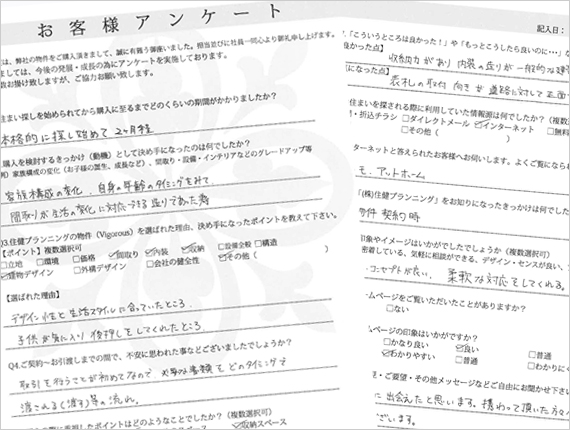 お客様アンケート
は、弊社の物件をご購入頂きまして、誠に有難う御座いました。担当並びに社員一同心より御礼申し上げます。
ましては、今後の発展・成長の為にアンケートを実施しております。
数お掛け致しますが、ご協力お願い致します。
住まい探しを始められてから購入に至るまでどのくらいの期間がかかりましたか?
本格的に探し始めて 2ヶ月程
購入を検討するきっかけ(動機)として決め手になったのは何でしたか?
例)家族構成の変化(お子様の誕生、成長など)、間取り・設備・インテリアなどのグレードアップ等
家族構成の変化、自身の年齢のタイミングをみて、
間取りが生活の変化に対応できる造りであった為
Q3.住健プランニングの物件(Vigorous)を選ばれた理由、決め手になったポイントを教えて下さい。
【ポイント】複数選択可
□立地 □環境 □価格 ☑間取り ☑内装 ☑収納 □設備全般 □構造
☑建物デザイン □外構デザイン □会社の健全性 ☑その他(
【選ばれた理由】
デザイン性と生活スタイルに合っていたところ
子供が気に入り後押しをしてくれたところ
Q4.ご契約〜お引渡しまでの間で、不安に思われた事などございましたでしょうか?
取引を行うことが初めてなので 必要な書類をどのタイミングで
渡される(渡す)等の流れ。
に重視したポイントはどのようなことでしたか?(複数選択可)
☑収納スペース
記入日:
「こういうところは良かった!」や「もっとこうしたら良いのに…」な
良かった点】
収納力があり 内装の造りが一般的な建
になった点】
表札の取付 向きが道路に対して正面
住まいを探される際に利用していた情報源は何でしたか?(複数選
・折込チラシ □ダイレクトメール ☑インターネット □無料
□その他(
ターネットと答えられたお客様へお伺いします。よくご覧になられ
モ、アットホーム
「(株)住健プランニング」をお知りになったきっかけは何でした
物件 契約時
印象やイメージはいかがでしたでしょうか(複数選択可)
密着している、気軽に相談ができる、デザイン・センスが良い、
コンセプトが良い、柔軟な対応をしてくれる。
ムページをご覧いただいたことがありますか?
□ない
ページの印象はいかがですか?
□かなり良い ☑良い □普通
☑わかりやすい □普通 □わかりにく
・ご要望・その他メッセージなどご自由にお聞かせ下さい
に出会えたと思います。携わって頂いた方々
ざいます。